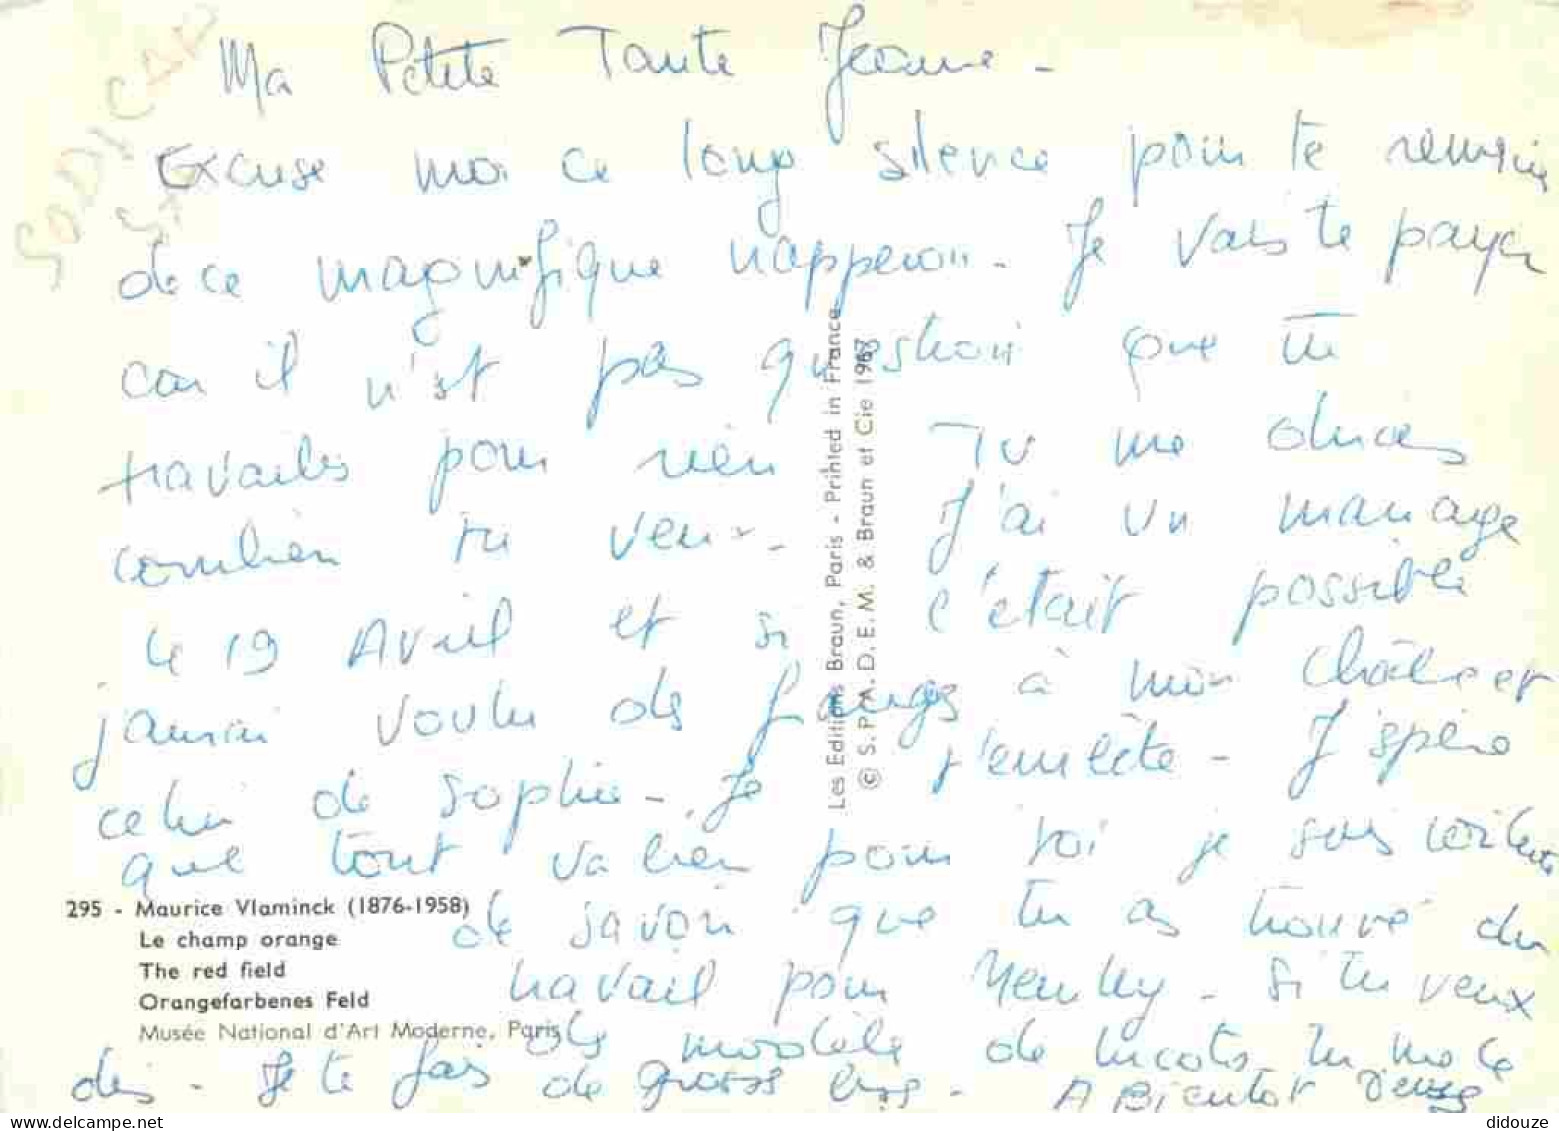 Ma Petite Tante Jeanne -
Excuse moi ce long silence pour te
de ce magnifique napperon - Je vais te payer
car il n'est pas question que tu
travailles pour rien Tu me diras
combien tu veux - J'ai un mariage
le 19 Avril et si c'était possible
voulu des à mon
celui de Sophie - Je t'embête - J'espère
que tout va bien pour toi je suis
de savoir que tu as trouvé du
travail pour - Si tu veux
des modèle de tricots tu me le
dis - Je te fais de grosses bises - A Bientot
295 - Maurice Vlaminck (1876-1958)
Le champ orange
The red field
Orangefarbenes Feld
Musée National d'Art Moderne, Paris
Les Editions Braun, Paris - Printed in France
© S.P.A.D.E.M. & Braun et Cie 1967
delcampe.net
didouze